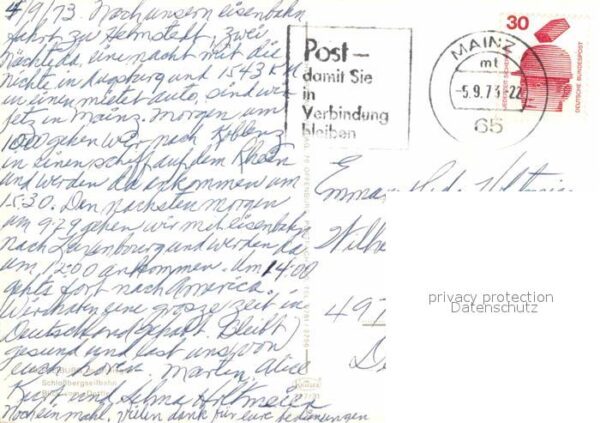 4/9/73. Noch unsern eisenbahn
fahrt zu Helmstedt, zwei
Nächte da, eine nacht mit die
nichte in Augsburg und 1543 KM
in einen miet auto, sind wir
jetz in Mainz. Morgen um
1000 gehen wir nach Koblenz
in einen schiff auf dem Rhein
und werden da ankommen um
15:30. Den nachsten morgen
um 9:29 gehen wir mit eisenbahn
nach Luxembourg und werden da
um 12:00 ankommen. Um 14:00
gehts fort nach America.
Wir haben eine grosze zeit in
Deutschland gehabt. Bleibt
gesund und last uns von
euch horen. Martin, Alice
Kurt, und Selma Holtmeier
Noch ein mahl, vielen dank für eure bedienungen
Schloßbergseilbahn
Post-
damit Sie
in
Verbindung
bleiben
MAINZ
mt
-5.9.73-22
65
30
DEUTSCHE BUNDESPOST
Wilhe
497
D
privacy protection
Datenschutz